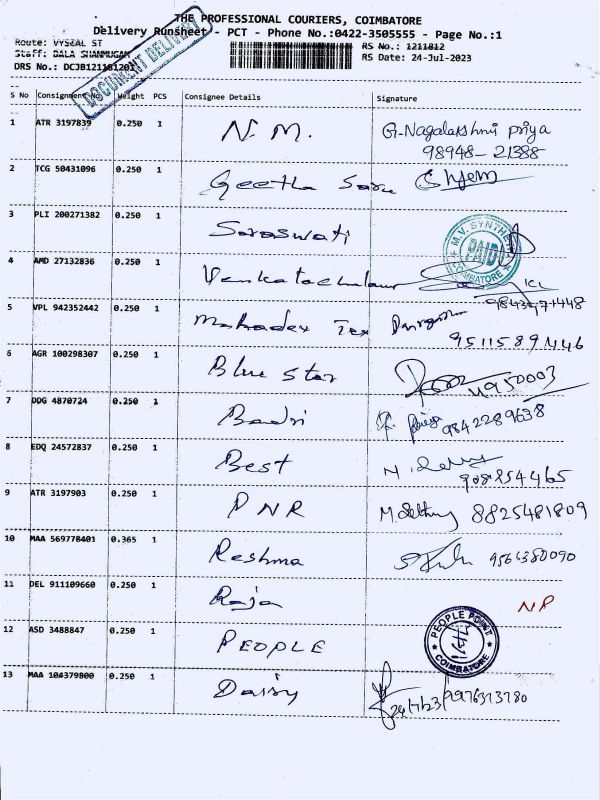 THE PROFESSIONAL COURIERS, COIMBATORE
Delivery Runsheet - PCT - Phone No.:0422-3505555 - Page No.:1
Route: VYSEAL ST
RS No.: 1211812
Staff: BALA SHANMUGAM
RS Date: 24-Jul-2023
DRS No.: DCJB121181201
DOCUMENT DELIVERY
S No Consignment No Weight PCS Consignee Details Signature
1 ATR 3197839 0.250 1 N. M. G. Nagalakshmi Priya
98948-21388
2 TCG 50431096 0.250 1 Geetha Saree
3 PLI 200271382 0.250 1 Saraswati
M.V. SYNTHE
PAID
COIMBATORE
4 AMD 27132836 0.250 1 Venkatachalam
5 VPL 942352442 0.250 1 Mahadev Tex
6 AGR 100298307 0.250 1 Blue Star
7 DDG 4870724 0.250 1 Badri 9842289638
8 EDQ 24572837 0.250 1 Best
9 ATR 3197903 0.250 1 PNR 8825481809
10 MAA 569778401 0.365 1 Reshma 9566380090
11 DEL 911109660 0.250 1 Raja NP
12 ASD 3488847 0.250 1 PEOPLE
PEOPLE POINT
COIMBATORE
13 MAA 104379800 0.250 1 Daisy 24/7/23